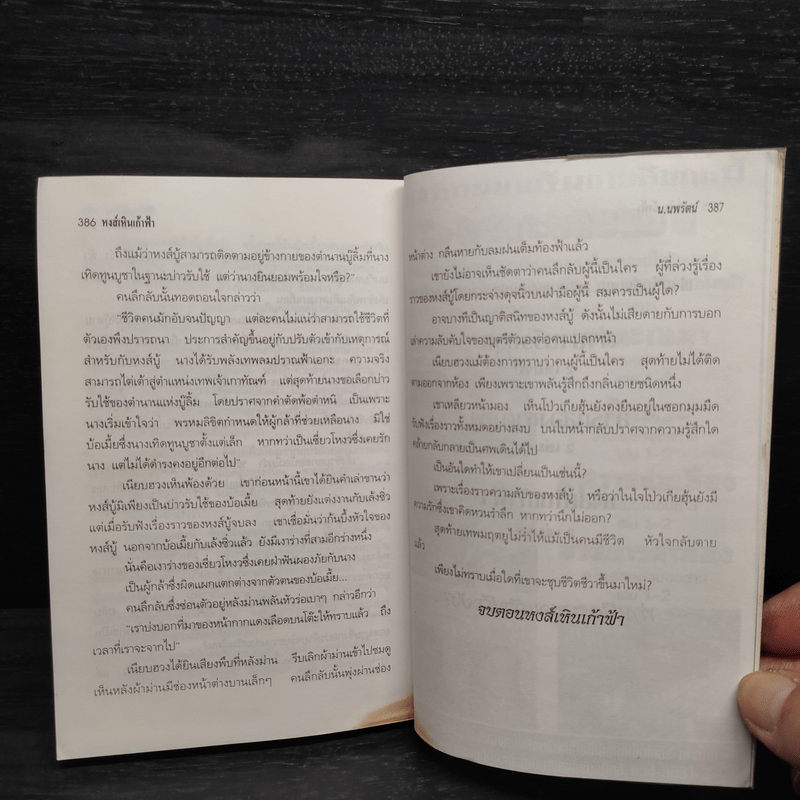 386 หงส์เหินเก้าฟ้า
ถึงแม้ว่าหงส์บู๊สามารถติดตามอยู่ข้างกายของตำนานบู๊ลิ้มที่นาง
เทิดทูนบูชาในฐานะบ่าวรับใช้ แต่ว่านางยินยอมพร้อมใจหรือ?"
คนลึกลับนั้นทอดถอนใจกล่าวว่า
"ชีวิตคนมักอับจนปัญญา แต่ละคนไม่แน่ว่าสามารถใช้ชีวิตที่
ตัวเองพึงปรารถนา ประการสำคัญขึ้นอยู่กับปรับตัวเข้ากับเหตุการณ์
สำหรับกับหงส์บู๊ นางได้รับพลังเทพลมปราณฟ้าเอกะ ความจริง
สามารถไต่เต้าสู่ตำแหน่งเทพเจ้าเกาทัณฑ์ แต่สุดท้ายนางขอเลือกบ่าว
รับใช้ของตำนานแห่งบู๊ลิ้ม โดยปราศจากคำตัดพ้อตำหนิ เป็นเพราะ
นางเริ่มเข้าใจว่า พรหมลิขิตกำหนดให้ผู้กล้าที่ช่วยเหลือนาง มิใช่
บ้อเมี้ยซึ่งนางเทิดทูนบูชาตั้งแต่เล็ก หากทว่าเป็นเซี่ยวโหวงซึ่งเคยรัก
นาง แต่ไม่ได้ดำรงคงอยู่อีกต่อไป"
เนียบฮวงเห็นพ้องด้วย เขาก่อนหน้านี้เขาได้ยินคำเล่าขานว่า
หงส์บู๊มิเพียงเป็นบ่าวรับใช้ของบ้อเมี้ย สุดท้ายยังแต่งงานกับเล้งชิ่ว
แต่เมื่อรับฟังเรื่องราวของหงส์บู๊จบลง เขาเชื่อมั่นว่าก้นบึ้งหัวใจของ
หงส์บู๊ นอกจากบ้อเมี้ยกับเล้งชิ่วแล้ว ยังมีเงาร่างที่สามอีกร่างหนึ่ง
นั่นคือเงาร่างของเซี่ยวโหวงซึ่งเคยฝ่าฟันผองภัยกับนาง
เป็นผู้กล้าซึ่งผิดแผกแตกต่างจากตัวตนของบ้อเมี้ย...
คนลึกลับซึ่งซ่อนตัวอยู่หลังม่านพลันหัวร่อเบาๆ กล่าวอีกว่า
"เราบ่งบอกที่มาของหน้ากากแดงเลือดบนโต๊ะให้ทราบแล้ว ถึง
เวลาที่เราจะจากไป"
เนียบฮวงได้ยินเสียงพึ่บที่หลังม่าน รีบเลิกผ้าม่านเข้าไปชมดู
เห็นหลังผ้าม่านมีช่องหน้าต่างบานเล็กๆ คนลึกลับนั้นพุ่งผ่านช่อง
น.นพรัตน์ 387
หน้าต่าง กลืนหายกับลมฝนเต็มท้องฟ้าแล้ว
เขายังไม่อาจเห็นชัดตาว่าคนลึกลับผู้นี้เป็นใคร ผู้ที่ล่วงรู้เรื่อง
ราวของหงส์บู๊โดยกระจ่างดุจนิ้วบนฝ่ามือผู้นี้ สมควรเป็นผู้ใด?
อาจบางทีเป็นญาติสนิทของหงส์บู๊ ดังนั้นไม่เสียดายกับการบอก
เล่าความลับคับใจของบุตรีตัวเองต่อคนแปลกหน้า
เนียบฮวงแม้ต้องการทราบว่าคนผู้นี้เป็นใคร สุดท้ายไม่ได้ติด
ตามออกจากห้อง เพียงเพราะเขาพลันรู้สึกถึงกลิ่นอายชนิดหนึ่ง
เขาเหลียวหน้ามอง เห็นโป่วเกียฮุ้นยังคงยืนอยู่ในซอกมุมมืด
รับฟังเรื่องราวทั้งหมดอย่างสงบ บนใบหน้ากลับปราศจากความรู้สึกใด
คล้ายกลับกลายเป็นศพเดินได้ไป
เป็นอันใดทำให้เขาเปลี่ยนเป็นเช่นนี้?
เพราะเรื่องราวความลับของหงส์บู๊ หรือว่าในใจโป่วเกียฮุ้นยังมี
ความรักซึ่งเขาคิดหวนรำลึก หากทว่านึกไม่ออก?
สุดท้ายเทพมฤตยูไม่ร่ำไห้แม้เป็นคนมีชีวิต หัวใจกลับตาย
แล้ว
เพียงไม่ทราบเมื่อใดที่เขาจะชุบชีวิตชีวาขึ้นมาใหม่?
จบตอนหงส์เหินเก้าฟ้า